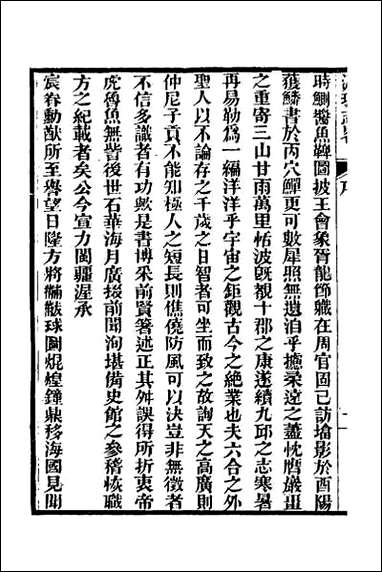 時鯛醬魚鞞圖披王會象胥龍節藏在周官固已訪墖影於酉陽
獲鱗書於丙穴鱓更可數犀照無遺洎乎攄柔遠之藎忱膺巖疆
之重寄三山甘雨萬里恬波旣覩十郡之康遂續九邱之志寒暑
再易勒爲一編洋洋乎宇宙之鉅觀古今之絶業也夫六合之外
聖人以不論存之千歲之日智者可坐而致之故詢天之高廣則
仲尼子貢不能知極人之短長則僬僥防風可以決豈非無徵者
不信多識者有功歟是書博采前賢箸述正其舛誤得所折衷帝
虎魯魚無訾後世石華海月廣掇前聞洵堪備史館之參稽恢職
方之紀載者矣公今宣力閩疆渥承
宸眷勳猷所至譽望日隆方將黼黻球圖焜煌鐘鼎移海國見聞